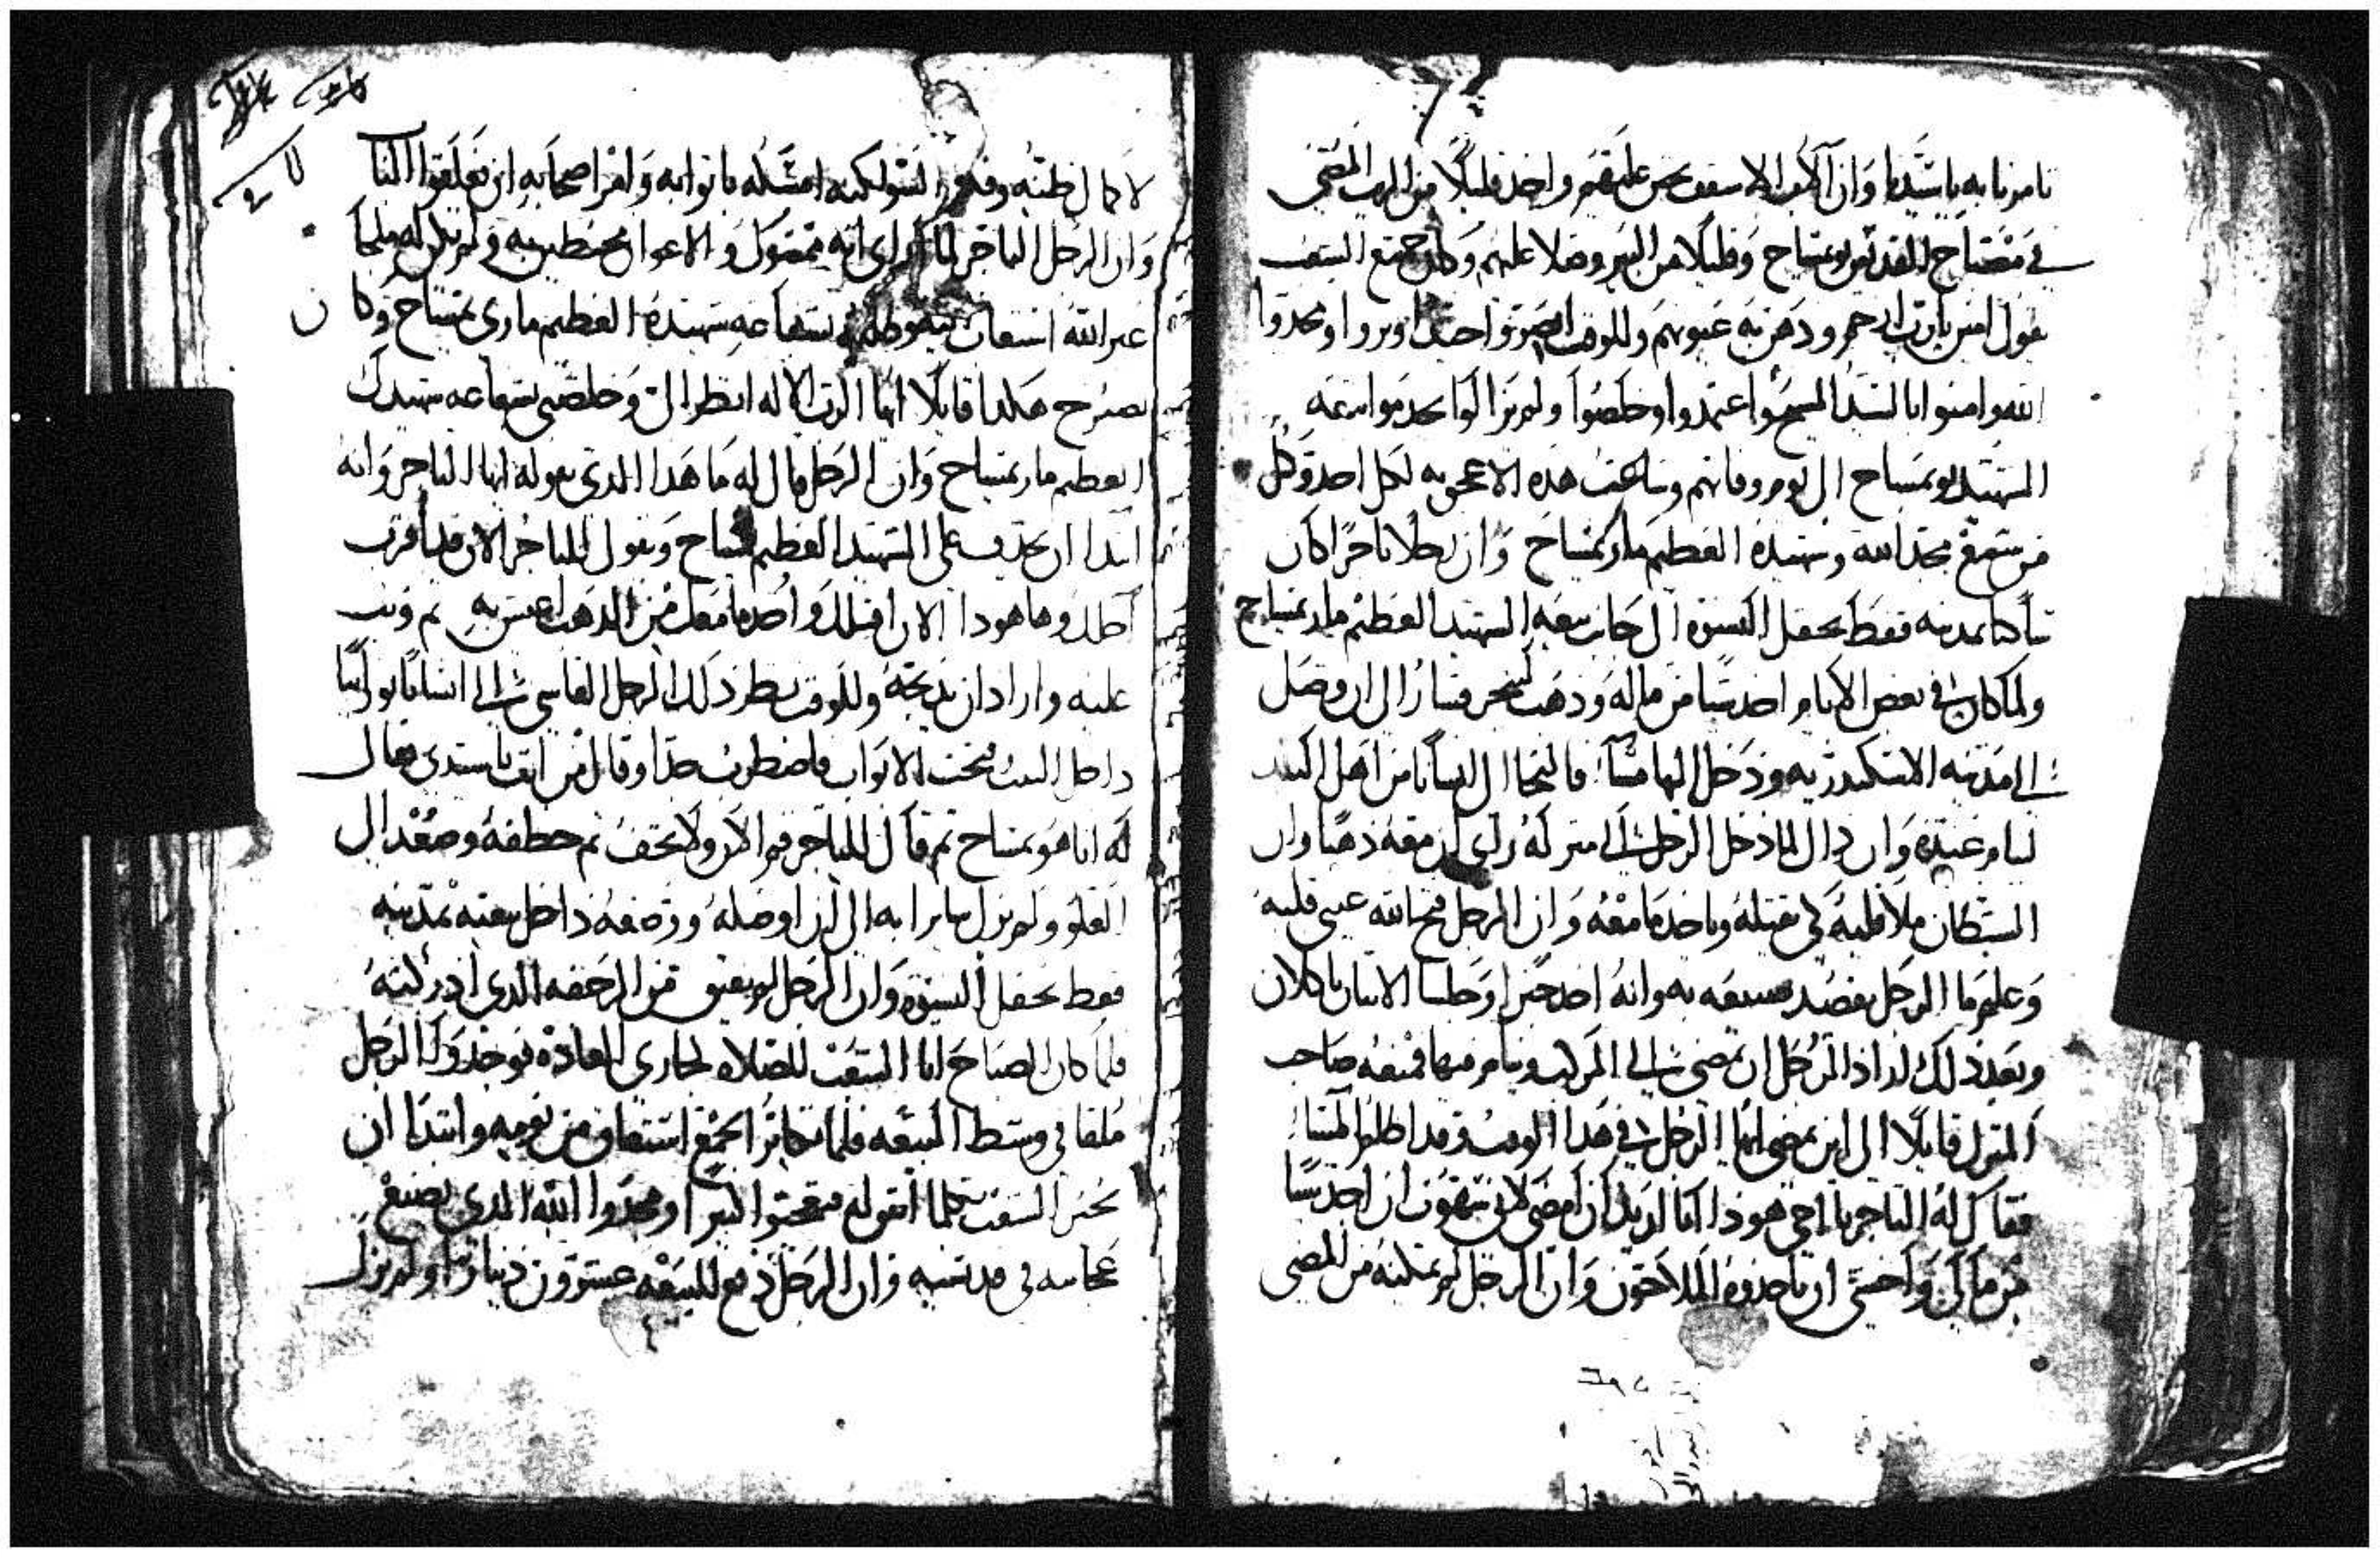 تامرنا به ياسيدنا وان الاب الاسقف تحنن عليهم واخد قليلاً من الزيت المضي
في مصباح القديس بو بمنباح وقليلا من البير وصلا عليهم وكان جميع الشعب
يقول امين يارب ارحم ودهن به عيونهم وللوقت ابصرتوا جيدا وبروا ومجدوا
الله وامنوا بالسيد المسيح واعتمدوا وخلصوا ولم يزالوا يخدموا بيعه
الشهيد بو بمنباح الى يوم وفاتهم وشاعت هذه الاعجوبه لكل احد وكل
من سمع مجد الله وشهيده العظيم ماري بمنباح وان رجلا تاجرا كان
ساكنا بمدينه قفط بحقل السوه الى جانب بيعه الشهيد العظيم ماري بمنباح
ولما كان في بعض الايام اخد شيا من ماله وذهب ليتجر فسار الى ان وصل
الى مدينه الاسكندريه ودخل اليها مسآ فالتجا الى انسانا من اهل البلد
لينام عنده وان دال لما دخل الرجل الى منزله راى ان معه ذهبا وان
الشيطان ملا قلبه لكي يقتله وياخد ما معه وان الرجل فتح الله عيني قلبه
وعلم ما الرجل يقصد يصنعه به وانه اخد خبزا وجلسا الاتنان ياكلان
وبعد ذلك اراد الرجل ان يمضي الى المركب وينام فيها فمنعه صاحب
المنزل قايلا الى اين تمضي ايها الرجل في هدا الوقت وقد اظلم المسا
فقال له التاجر يا اخي هودا انا اريد ان امضي لاني نتهون ان اخد شيا
من مالي واخشى ان ياخدوه الملاحون وان الرجل لم يمكنه من المضي
لاكمال ظنه وفكره السو لكنه امسكه بابوابه وامر اصحابه ان يغلقوا الباب
وان الرجل التاجر لما راى انه مقتول والاعوان محيطين به ولم يكن له ملجا
غير الله استغاث بشفاعه شهيده العظيم ماري بمنباح وكان
يصرخ هكدا قايلا ايها الرب الاله انظر الي وخلصني بشفاعه شهيدك
العظيم ماري بمنباح وان الرجل قال له ما هدا الدي تقوله ايها التاجر وانه
ابتدا ان يجدف على الشهيد العظيم بمنباح ويقول للتاجر الان قد اقترب
اجلك وها هودا الان اقتلك واخد ما معك من الدهب اعيش به ثم وثب
عليه واراد ان يدبحه وللوقت نظر ذلك الرجل القاسي الى انسانا نورانيا
داخل البيت فتحت الابواب فاضطرب جدا وقال من انت ياسيدي فقال
له انا هو بمنباح ثم قال للتاجر قم الان ولا تخف ثم خطفه وصعد الى
العلو ولم يزل سايرا به الى ان اوصله ووضعه داخل بيعته بمدينه
قفط بحقل السوه وان الرجل لم يفيق من الرجفه الدي ادركته
فلما كان الصباح اتا الشعب للصلاه لجاري العاده فوجدوا الرجل
ملقا في وسط البيعه فلما تكاتر الجمع استفاق من نومه وابتدا ان
يخبر الشعب بكلما اتفق له فتعجبوا كتيرا ومجدوا الله الدي يصنع
عجايبه في قديسيه وان الرجل دفع للبيعه عشرون دينارا ولم يزل